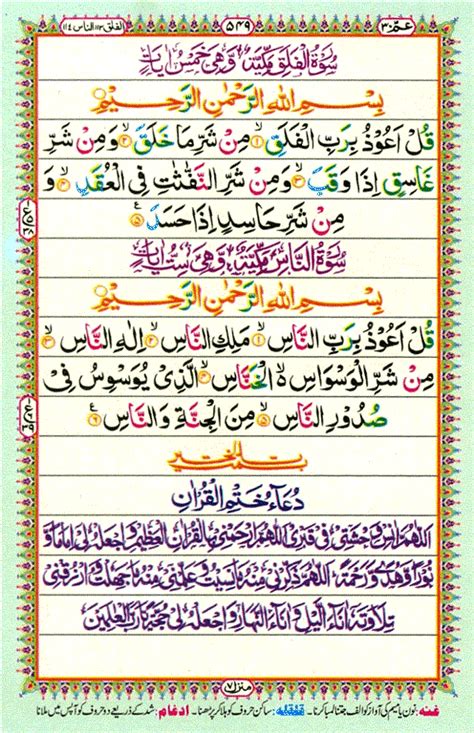 عمّ ٣٠ ٥٤٩ الفلق ١١٣ الناس ١١٤
سُوْرَةُ الْفَلَقِ مَكِّيَّةٌ وَّهِيَ خَمْسُ اٰيَاتٍ
بِسْمِ اللّٰهِ الرَّحْمٰنِ الرَّحِيْمِ
قُلْ اَعُوْذُ بِرَبِّ الْفَلَقِ ۙ﴿۱﴾ مِنْ شَرِّ مَا خَلَقَ ۙ﴿۲﴾ وَ مِنْ شَرِّ
غَاسِقٍ اِذَا وَقَبَ ۙ﴿۳﴾ وَ مِنْ شَرِّ النَّفّٰثٰتِ فِی الْعُقَدِ ۙ﴿۴﴾ وَ
مِنْ شَرِّ حَاسِدٍ اِذَا حَسَدَ ﴿۵﴾
سُوْرَةُ النَّاسِ مَكِّيَّةٌ وَّهِيَ سِتُّ اٰيَاتٍ
بِسْمِ اللّٰهِ الرَّحْمٰنِ الرَّحِيْمِ
قُلْ اَعُوْذُ بِرَبِّ النَّاسِ ۙ﴿۱﴾ مَلِكِ النَّاسِ ۙ﴿۲﴾ اِلٰهِ النَّاسِ ۙ﴿۳﴾
مِنْ شَرِّ الْوَسْوَاسِ ۬ۙ الْخَنَّاسِ ۪ۙ﴿۴﴾ الَّذِیْ یُوَسْوِسُ فِیْ
صُدُوْرِ النَّاسِ ۙ﴿۵﴾ مِنَ الْجِنَّةِ وَ النَّاسِ ﴿۶﴾
تمت بالخير
دُعَآءُ خَتْمِ الْقُرْاٰنِ
اَللّٰهُمَّ اٰنِسْ وَحْشَتِيْ فِيْ قَبْرِيْ اَللّٰهُمَّ ارْحَمْنِيْ بِالْقُرْاٰنِ الْعَظِيْمِ وَاجْعَلْهُ لِيْ اِمَامًا وَّ
نُوْرًا وَّهُدًى وَّرَحْمَةً اَللّٰهُمَّ ذَكِّرْنِيْ مِنْهُ مَا نَسِيْتُ وَعَلِّمْنِيْ مِنْهُ مَا جَهِلْتُ وَارْزُقْنِيْ
تِلَاوَتَهٗ اٰنَآءَ الَّيْلِ وَاٰنَآءَ النَّهَارِ وَاجْعَلْهُ لِيْ حُجَّةً يَّا رَبَّ الْعٰلَمِيْنَ
منزل ٧
غنہ: نون یا میم کی آواز کو الف جتنا لمبا کرنا۔ قلقلہ: ساکن حروف کو ہلا کر پڑھنا۔ ادغام: شد کے ذریعے دو حروف کو آپس میں ملانا